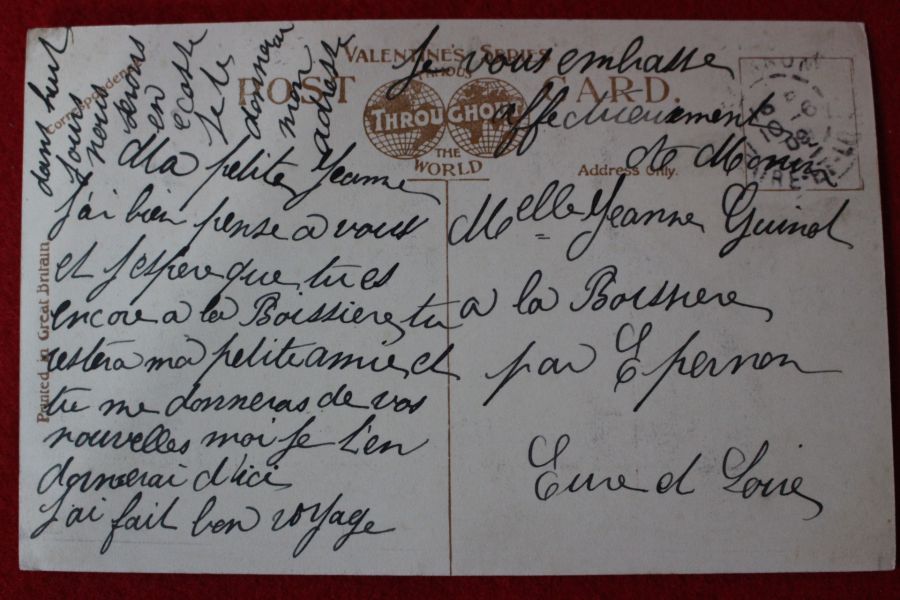 VALENTINE'S SERIES
FAMOUS
POST CARD.
THROUGHOUT
THE
WORLD
Correspondence
Address Only.
Printed in Great Britain
Ma petite Jeanne
j'ai bien pense a vous
et j'espere que tu es
encore a la Boissiere, tu
restera ma petite amie et
tu me donneras de vos
nouvelles moi je t'en
donnerai d'ici
j'ai fait bon voyage
dans huit
jours
nous
serons
en
ecosse
je te
donnerai
mon
adresse
Je vous embrasse
affectueusement
Melle Jeanne Guinot
a la Boissiere
par Epernon
Eure et Loire